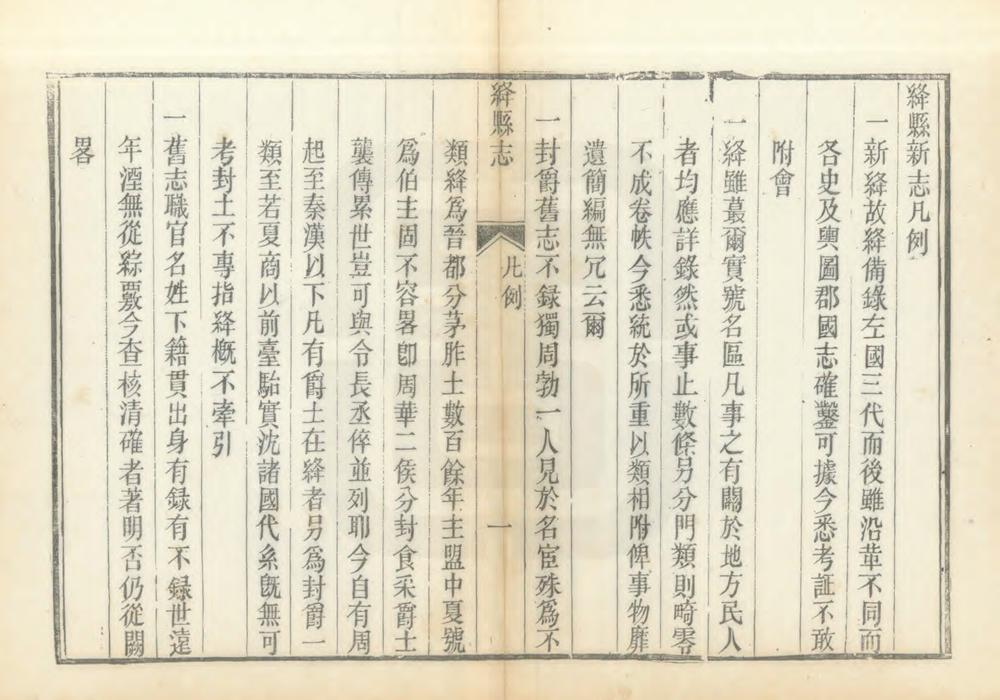 絳縣新志凡例
一新絳故絳備錄左國三代而後雖沿革不同而
各史及輿圖郡國志確鑿可據今悉考証不敢
附會
一絳雖蕞爾實號名區凡事之有關於地方民人
者均應詳錄然或事止數條另分門類則畸零
不成卷帙今悉統於所重以類相附俾事物靡
遺簡編無冗云爾
一封爵舊志不錄獨周勃一人見於名宦殊爲不
絳縣志
凡例
一
類絳爲晉都分茅胙土數百餘年主盟中夏號
爲伯主固不容畧卽周華二侯分封食采爵土
襲傳累世豈可與令長丞倅並列耶今自有周
起至秦漢以下凡有爵土在絳者另爲封爵一
類至若夏商以前臺駘實沈諸國代系旣無可
考封土不專指絳概不牽引
一舊志職官名姓下籍貫出身有録有不録世遠
年湮無從綜覈今查核清確者著明否仍從闕
畧